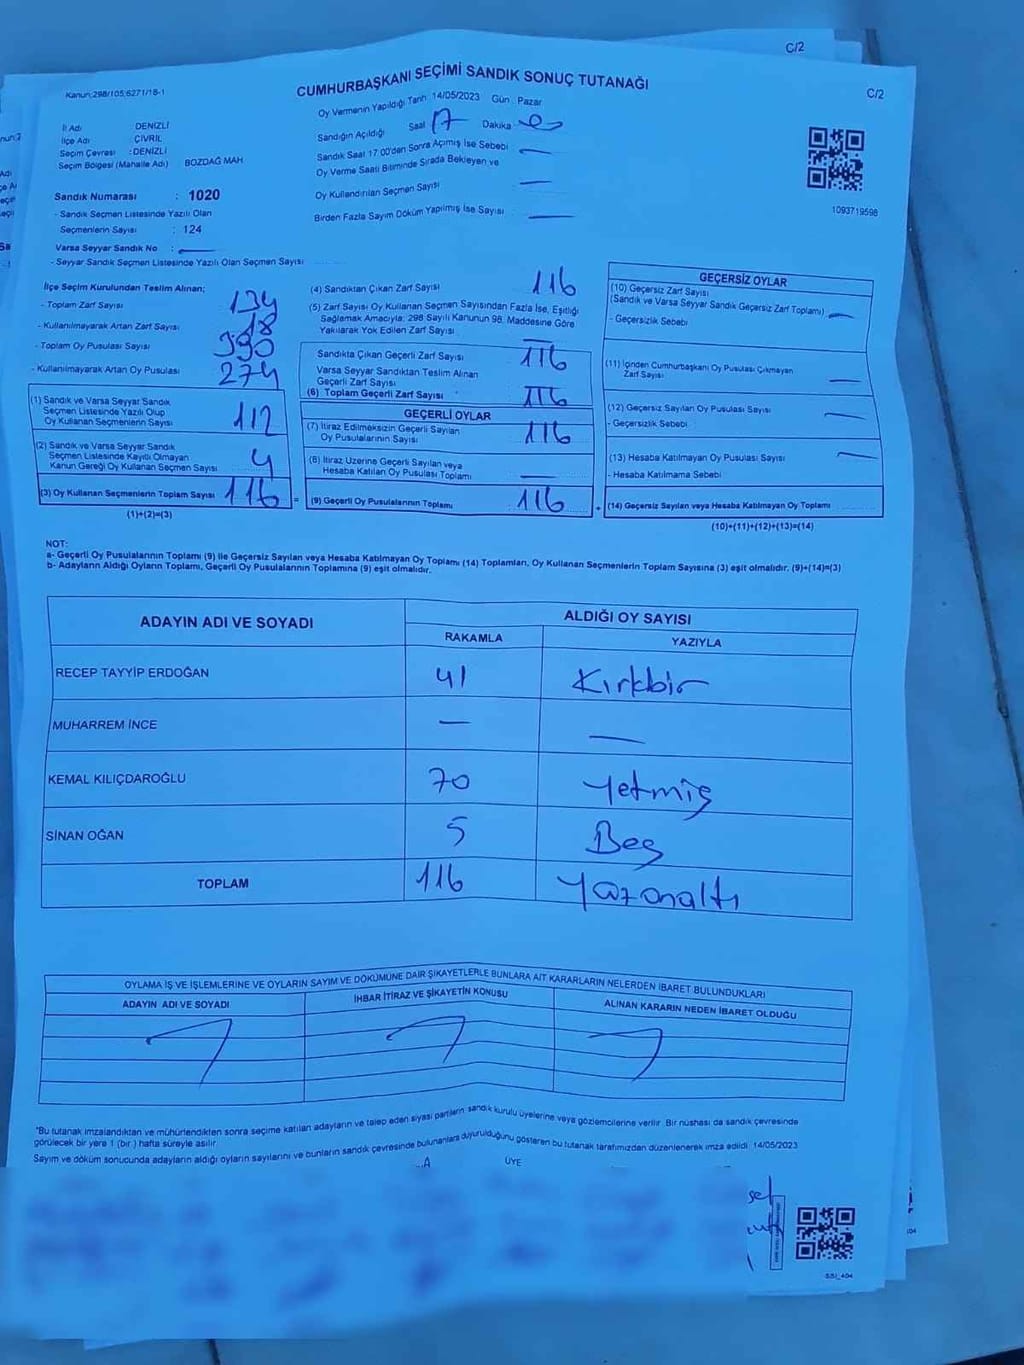 C/2
Kanun:298/105;6271/18-1
CUMHURBAŞKANI SEÇİMİ SANDIK SONUÇ TUTANAĞI
C/2
Oy Vermenin Yapıldığı Tarih 14/05/2023 Gün : Pazar
İl Adı DENİZLİ
İlçe Adı ÇİVRİL
Seçim Çevresi : DENİZLİ
Seçim Bölgesi (Mahalle Adı) BOZDAĞ MAH
Sandığın Açıldığı Saat 17 Dakika
Sandık Saat 17.00'den Sonra Açımış İse Sebebi —
Oy Verme Saati Bitiminde Sırada Bekleyen ve
Oy Kullandırılan Seçmen Sayısı —
Birden Fazla Sayım Döküm Yapılmış İse Sayısı —
1093719598
Sandık Numarası : 1020
- Sandık Seçmen Listesinde Yazılı Olan
Seçmenlerin Sayısı : 124
Varsa Seyyar Sandık No : —
- Seyyar Sandık Seçmen Listesinde Yazılı Olan Seçmen Sayısı
İlçe Seçim Kurulundan Teslim Alınan;
- Toplam Zarf Sayısı
- Kullanılmayarak Artan Zarf Sayısı 18
- Toplam Oy Pusulası Sayısı 390
- Kullanılmayarak Artan Oy Pusulası 274
(1) Sandık ve Varsa Seyyar Sandık
Seçmen Listesinde Yazılı Olup
Oy Kullanan Seçmenlerin Sayısı 112
(2) Sandık ve Varsa Seyyar Sandık
Seçmen Listesinde Kayıtlı Olmayan
Kanun Gereği Oy Kullanan Seçmen Sayısı 4
(3) Oy Kullanan Seçmenlerin Toplam Sayısı 116 =
(1)+(2)=(3)
(4) Sandıktan Çıkan Zarf Sayısı 116
(5) Zarf Sayısı Oy Kullanan Seçmen Sayısından Fazla İse, Eşitliği
Sağlamak Amacıyla; 298 Sayılı Kanunun 98. Maddesine Göre
Yakılarak Yok Edilen Zarf Sayısı —
Sandıkta Çıkan Geçerli Zarf Sayısı 116
Varsa Seyyar Sandıktan Teslim Alınan
Geçerli Zarf Sayısı
(6) Toplam Geçerli Zarf Sayısı 116
GEÇERLİ OYLAR
(7) İtiraz Edilmeksizin Geçerli Sayılan
Oy Pusulalarının Sayısı 116
(8) İtiraz Üzerine Geçerli Sayılan veya
Hesaba Katılan Oy Pusulası Toplamı —
(9) Geçerli Oy Pusulalarının Toplamı 116 +
GEÇERSİZ OYLAR
(10) Geçersiz Zarf Sayısı
(Sandık ve Varsa Seyyar Sandık Geçersiz Zarf Toplamı) —
- Geçersizlik Sebebi
(11) İçinden Cumhurbaşkanı Oy Pusulası Çıkmayan
Zarf Sayısı —
(12) Geçersiz Sayılan Oy Pusulası Sayısı —
- Geçersizlik Sebebi
(13) Hesaba Katılmayan Oy Pusulası Sayısı —
- Hesaba Katılmama Sebebi
(14) Geçersiz Sayılan veya Hesaba Katılmayan Oy Toplamı
(10)+(11)+(12)+(13)=(14)
NOT:
a- Geçerli Oy Pusulalarının Toplamı (9) ile Geçersiz Sayılan veya Hesaba Katılmayan Oy Toplamı (14) Toplamları, Oy Kullanan Seçmenlerin Toplam Sayısına (3) eşit olmalıdır. (9)+(14)=(3)
b- Adayların Aldığı Oyların Toplamı, Geçerli Oy Pusulalarının Toplamına (9) eşit olmalıdır.
ADAYIN ADI VE SOYADI ALDIĞI OY SAYISI
RAKAMLA YAZIYLA
RECEP TAYYİP ERDOĞAN 41 Kırkbir
MUHARREM İNCE — —
KEMAL KILIÇDAROĞLU 70 Yetmiş
SİNAN OĞAN 5 Beş
TOPLAM 116 Yüzonaltı
OYLAMA İŞ VE İŞLEMLERİNE VE OYLARIN SAYIM VE DÖKÜMÜNE DAİR ŞİKAYETLERLE BUNLARA AİT KARARLARIN NELERDEN İBARET BULUNDUKLARI
ADAYIN ADI VE SOYADI İHBAR İTİRAZ VE ŞİKAYETİN KONUSU ALINAN KARARIN NEDEN İBARET OLDUĞU
"Bu tutanak imzalandıktan ve mühürlendikten sonra seçime katılan adayların ve talep eden siyasi partilerin sandık kurulu üyelerine veya gözlemcilerine verilir. Bir nüshası da sandık çevresinde
görülecek bir yere 1 (bir ) hafta süreyle asılır.
Sayım ve döküm sonucunda adayların aldığı oyların sayılarını ve bunların sandık çevresinde bulunanlara duyurulduğunu gösteren bu tutanak tarafımızdan düzenlenerek imza edildi. 14/05/2023
ÜYE